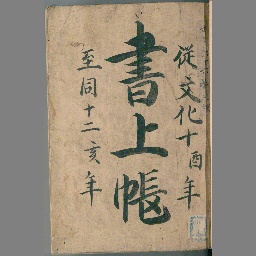 従文化十酉年
書上帳
至同十二亥年